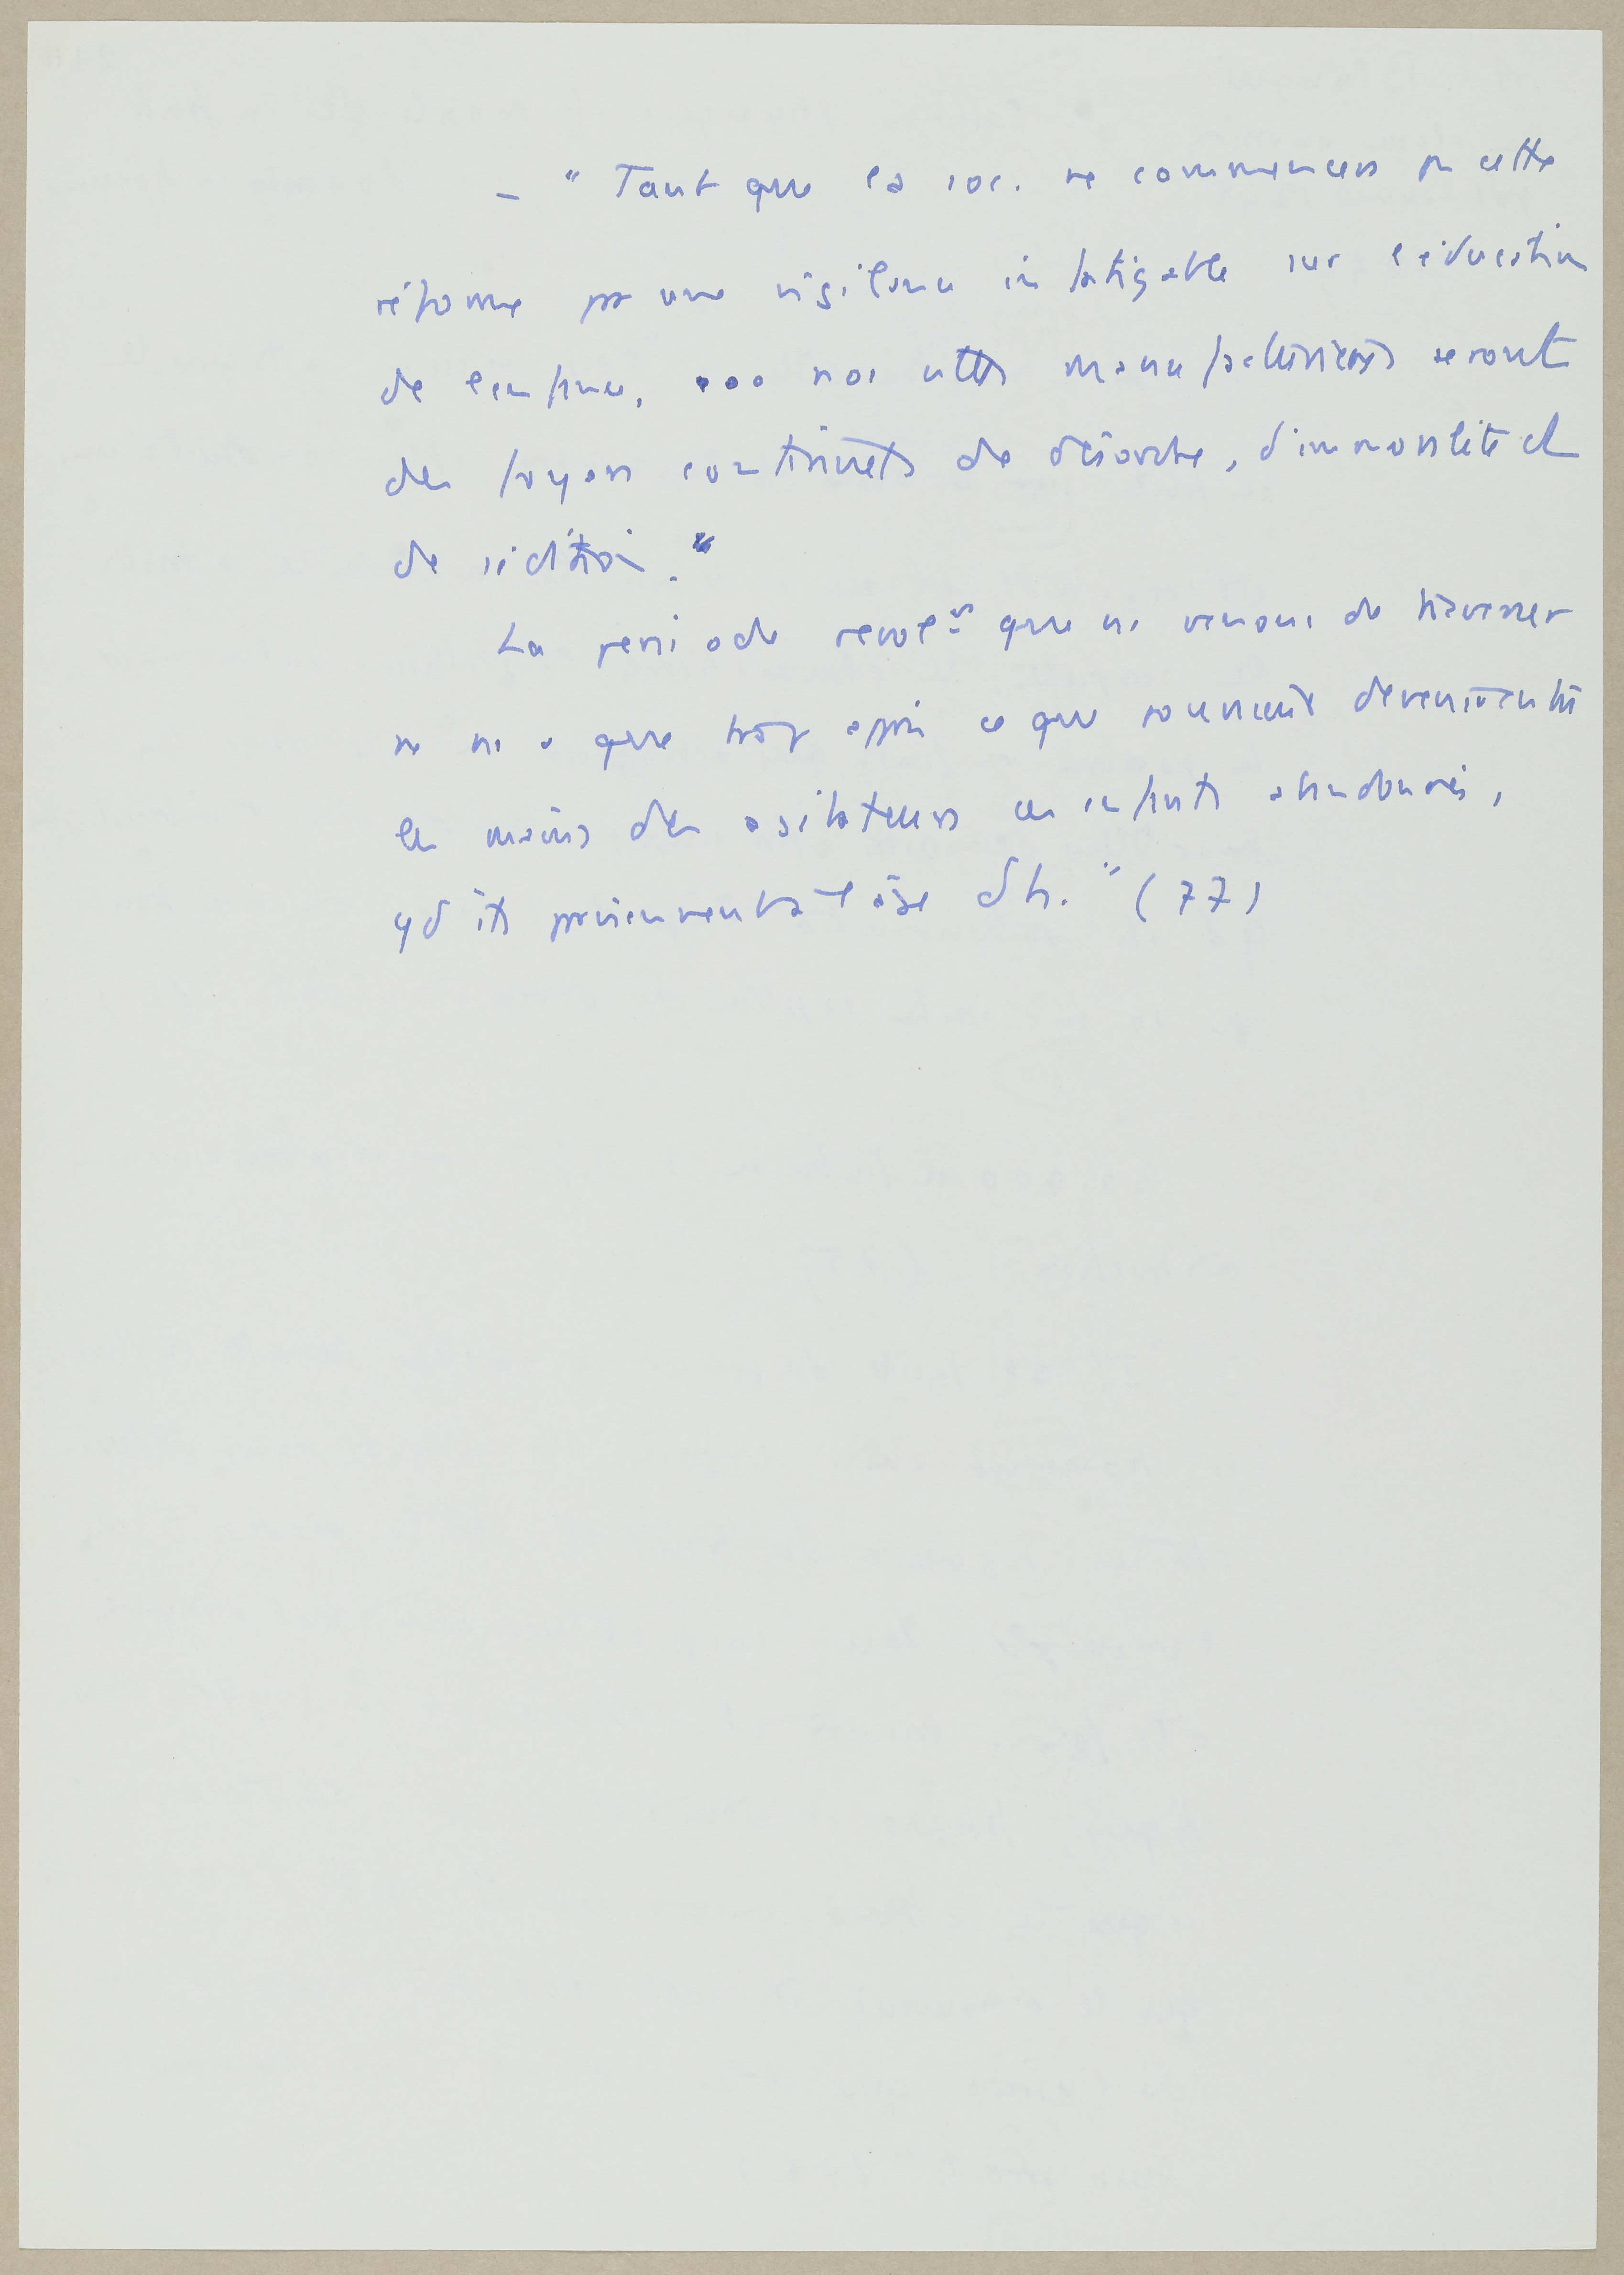 – " Tant que la soc. ne commencera pas cette
réforme par une vigilance infatigable sur l'éducation
de l'enfance, ... nos villes manufacturières seront
des foyers continuels de désordre, d'immoralité et
de sédition. "
La période revol^re que ns venons de traverser
ne ns a que trop appris ce que pouvaient devenir entre
les mains des agitateurs ces enfants abandonnés,
qd ils parviennent à l'âge d'h. " (77)